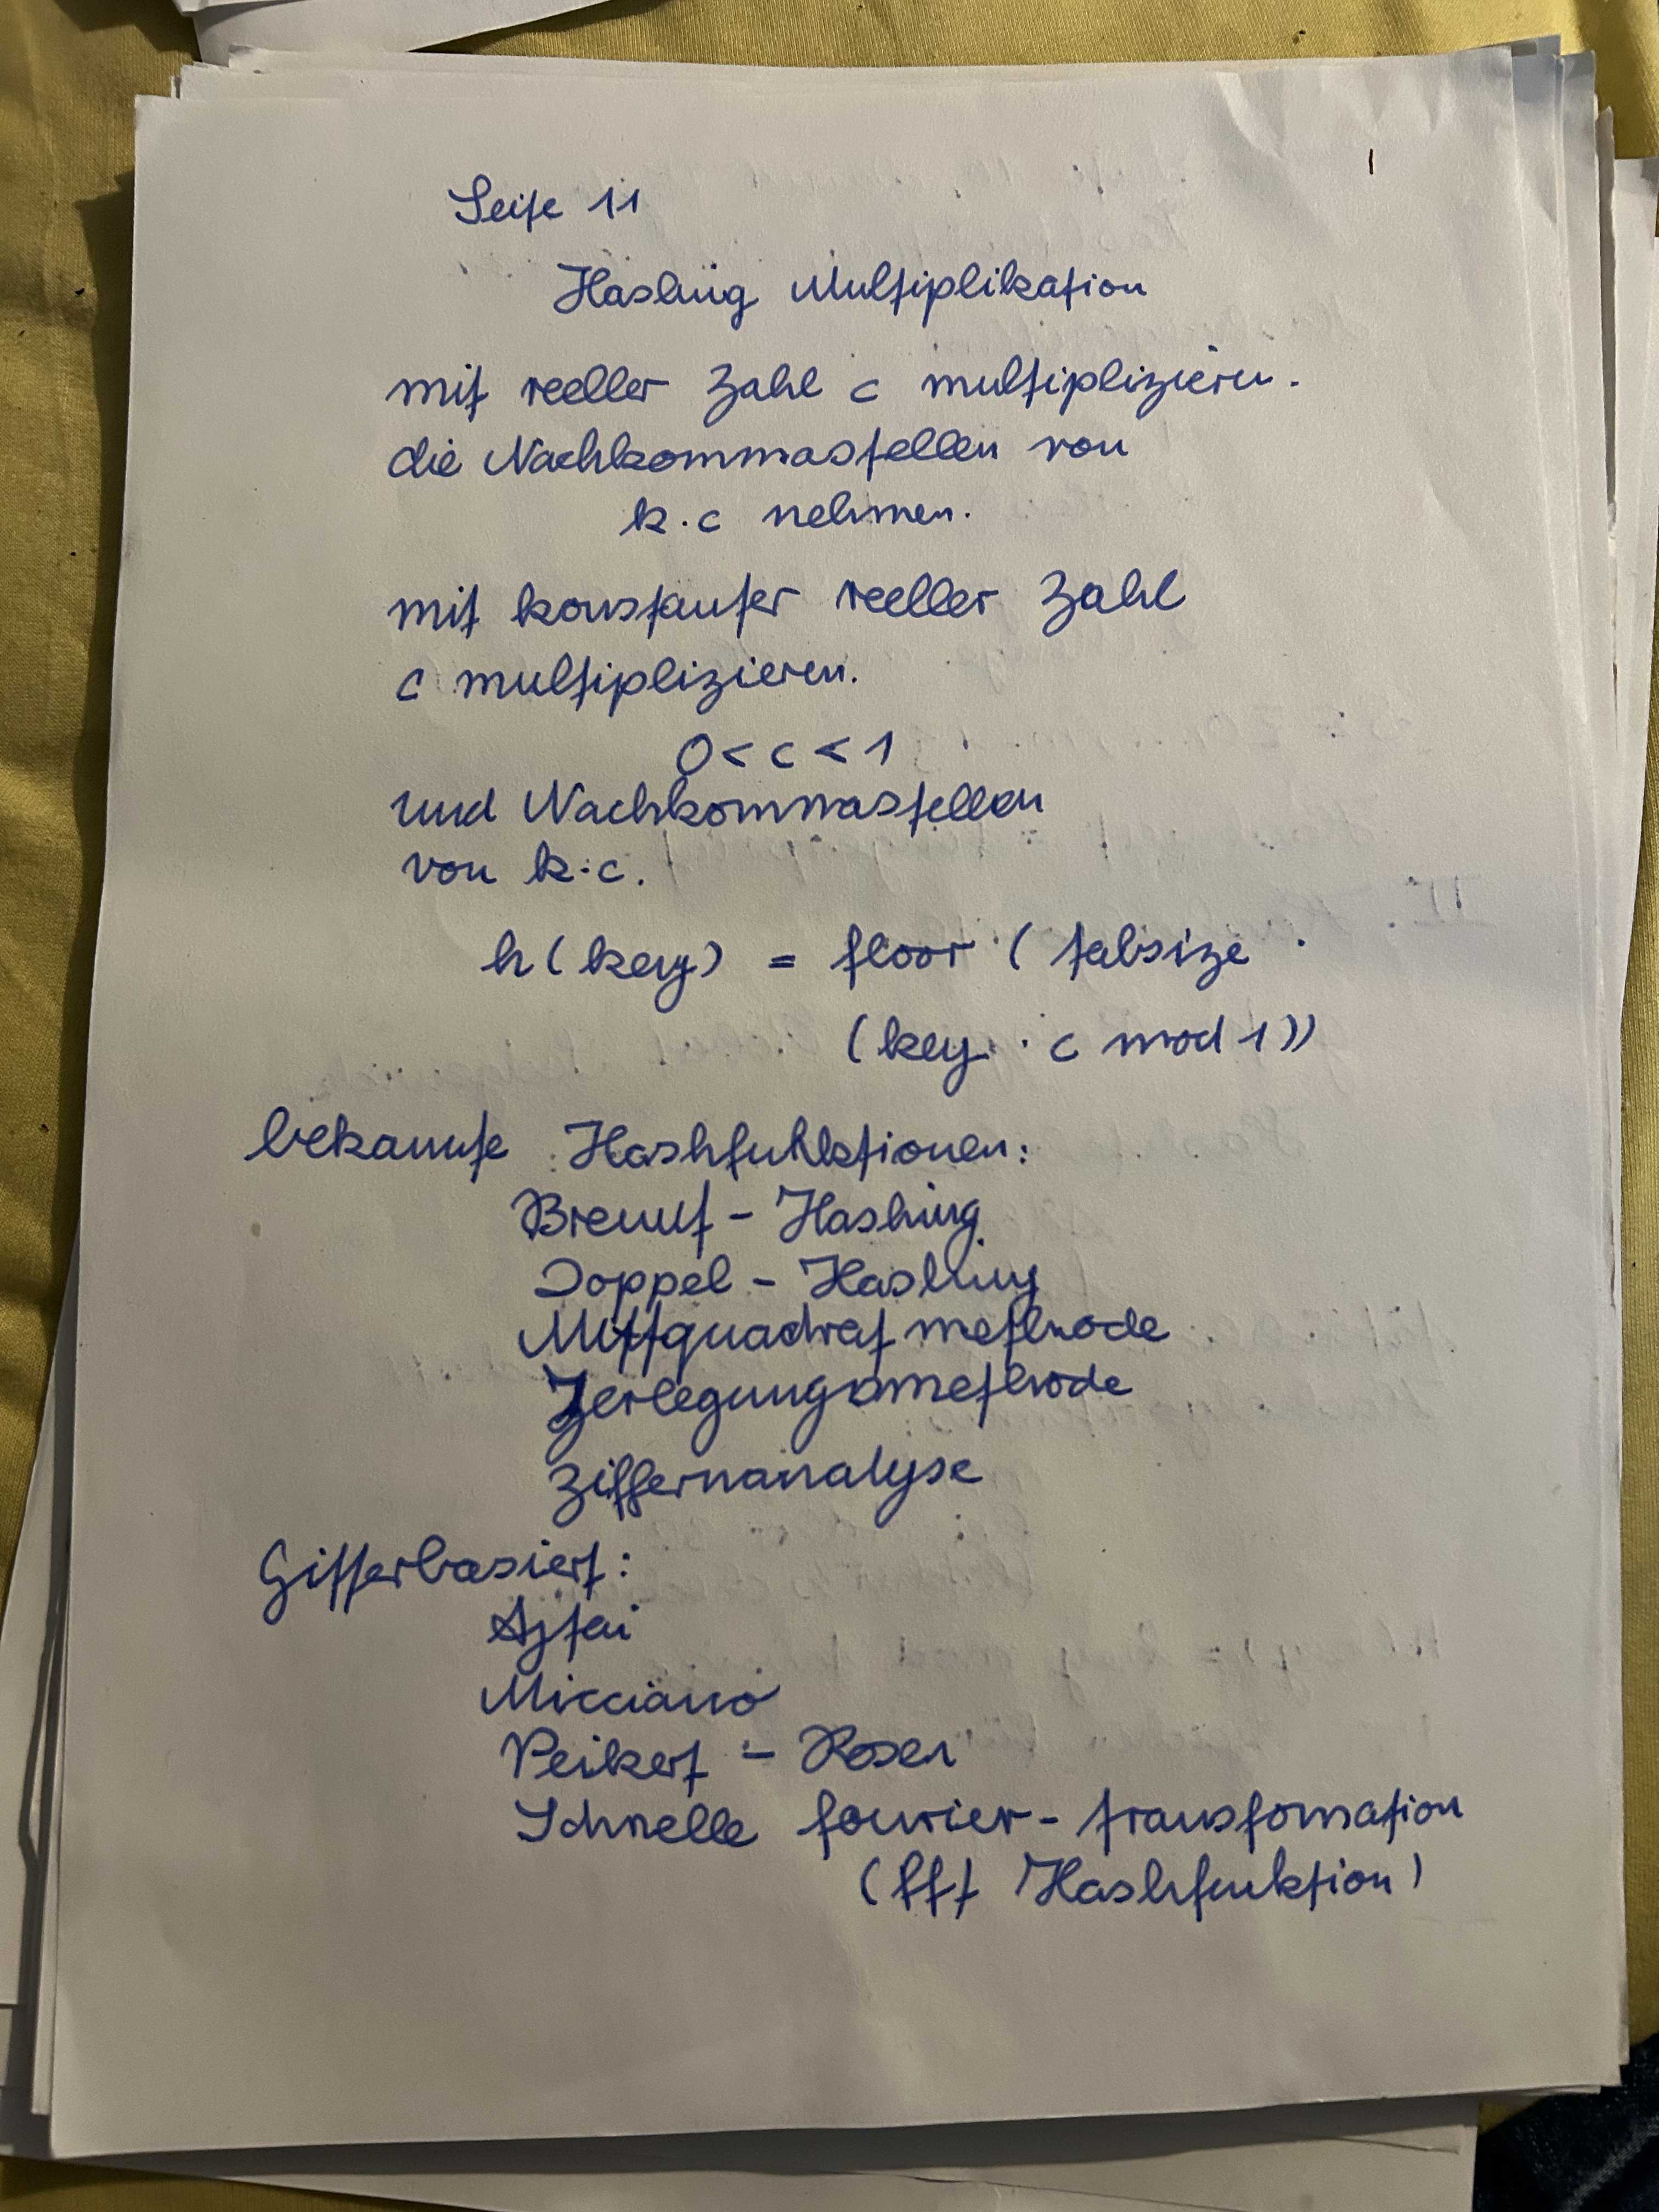 Seite 11
Hashing Multiplikation
mit reeller Zahl c multiplizieren.
die Nachkommastellen von
k·c nehmen.
mit konstanter reeller Zahl
c multiplizieren.
0 < c < 1
und Nachkommastellen
von k·c.
h(key) = floor (tabsize ·
(key · c mod 1))
bekannte Hashfunktionen:
Brent - Hashing
Doppel - Hashing
Mittquadratmethode
Zerlegungsmethode
Ziffernanalyse
Gitterbasiert:
Ajtai
Micciano
Peikert - Rosen
Schnelle fourier-transfomation
(fft Hashfunktion)